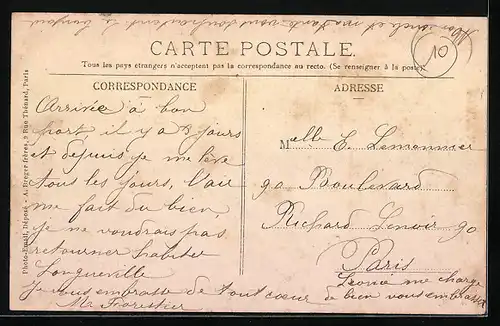 Mon oncle et ma tante vous souhaitent le bonjour
10
CARTE POSTALE.
Tous les pays étrangers n'acceptent pas la correspondance au recto. (Se renseigner à la poste)
CORRESPONDANCE
Arrivée à bon
port, il y a 8 jours
et depuis je me lève
tous les jours, l'air
me fait du bien,
je ne voudrais pas
retourner habiter
Longueville
Je vous embrasse de tout cœur
M Forestier
ADRESSE
Melle E. Lemonnier
90 Boulevard
Richard Lenoir 90
Paris
Léonie me charge
de bien vous embrasser
Photo-Email, Déposé - A. Breger frères, 9 Rue Thénard, Paris